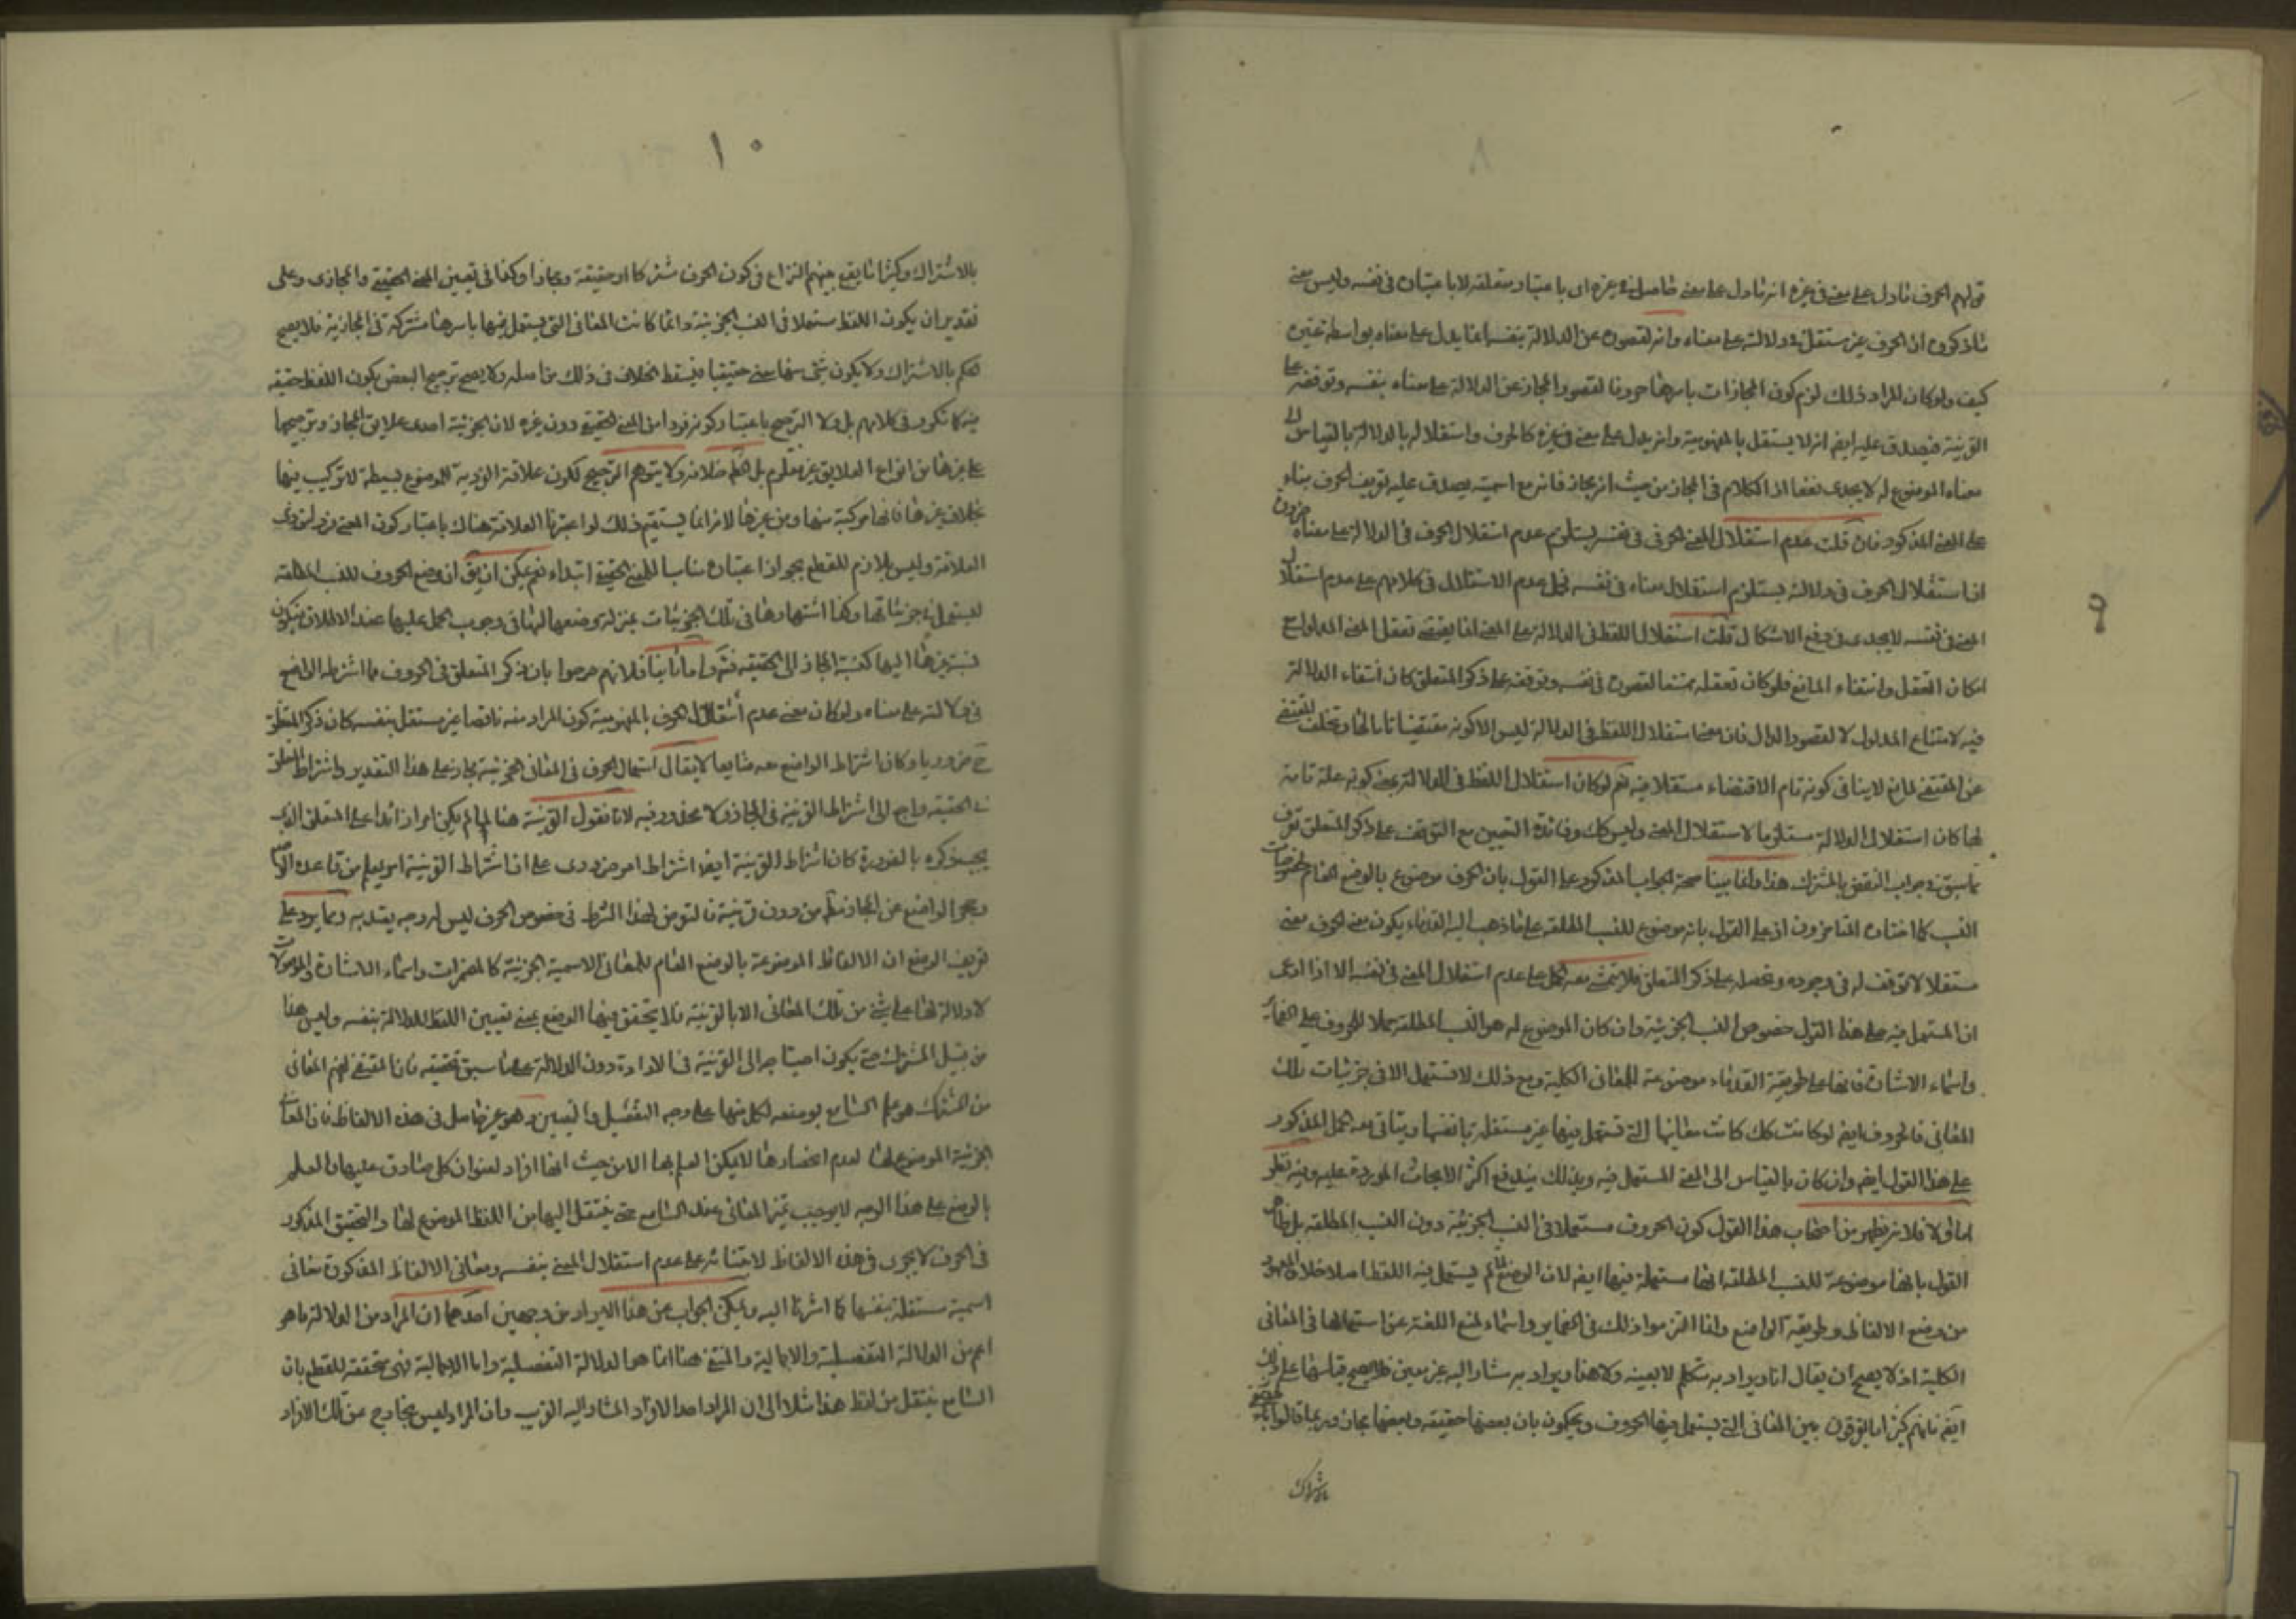 ٩
قولهم الحرف ما دل على معنى في غيره انه ما دل على معنى حاصل في غيره اى باعتبار متعلقه لا باعتباره في نفسه وليس معنى
ما ذكروه ان الحرف غير مستقل في دلالته على معناه وانه لقصوره عن الدلالة بنفسه انما يدل على معناه بواسطة غيره
كيف ولو كان المراد ذلك لزم كون المجازات باسرها حروفا لقصور المجاز عن الدلالة على معناه بنفسه وتوقفه على
القرينة فيصدق عليه ايضا انه لا يستقل بالمفهومية وانه يدل على معنى في غيره كالحرف واستقلاله بالدلالة بالقياس الى
معناه الموضوع له لا يجدى نفعا اذ الكلام في المجاز من حيث انه مجاز فانه مع اسميته يصدق عليه تعريف الحرف بناء
على المعنى المذكور فان قلت عدم استقلال المعنى الحرفى في نفسه يستلزم عدم استقلال الحرف في الدلالة على معناه ضرورة
ان استقلال الحرف في دلالته يستلزم استقلال معناه في نفسه فحمل عدم الاستقلال في كلامهم على عدم استقلال
المعنى في نفسه لا يجدى في دفع الاشكال قلت استقلال اللفظ في الدلالة على المعنى انما يقتضى تعقل المعنى المدلول مع
امكان التعقل وانتفاء المانع فلو كان تعقله ممتنعا لقصوره في نفسه وتوقفه على ذكر المتعلق كان انتفاء الدلالة
فيه لامتناع المدلول لا لقصور الدال فان معنى استقلال اللفظ في الدلالة ليس الا كونه مقتضيا تاما لها وتخلف المقتضى
عن المقتضى لمانع لا ينافى كونه تام الاقتضاء مستقلا فيه نعم لو كان استقلال اللفظ في الدلالة بمعنى كونه علة تامة
لها كان استقلال الدلالة مستلزما لاستقلال المعنى وليس كك وفائدة التعيين مع التوقف على ذكر المتعلق تعرف
مما سبق في جواب النقض بالمشترك هذا وانما بينا صحة الجواب المذكور على القول بان الحرف موضوع بالوضع العام لخصوصيات
النسب كما اختاره المتاخرون اذ على القول بانه موضوع للنسب المطلقة على ما ذهب اليه القدماء يكون معنى الحرف معنى
مستقلا لا توقف له في وجوده وتحصله على ذكر المتعلق فلا يتمشى معه الحمل على عدم استقلال المعنى في نفسه الا اذا ادعى
ان المستعمل فيه على هذا القول خصوص النسب الجزئية وان كان الموضوع له هو النسب المطلقة حملا للحروف على الضمائر
واسماء الاشارة فانها على طريقة القدماء موضوعة للمعانى الكلية ومع ذلك لا تستعمل الا في جزئيات تلك
المعانى فالحروف ايضا لو كانت كك كانت معانيها التى تستعمل فيها غير مستقلة بانفسها ويتاتى معه الحمل المذكور
على هذا القول ايضا وان كان بالقياس الى المعنى المستعمل فيه وبذلك يندفع اكثر الابحاث الموردة عليه وفيه نظر
اما اولا فلانه لم يظهر من اصحاب هذا القول كون الحروف مستعملا في النسب الجزئية دون النسب المطلقة بل ظاهر
القول بانها موضوعة للنسب المطلقة انها مستعملة فيها ايضا لان الوضع لما لم يستعمل فيه اللفظ اصلا خلاف المعهود
من وضع الالفاظ وطريقة الواضع وانما التزموا ذلك في الضماير واسماء لمنع اللغة عن استعمالها في المعانى
الكلية اذ لا يصح ان يقال انا ويراد به متكلم لا بعينه ولا هذا ويراد به مشار اليه غير معين فلا يصح قياسها على ذلك
ايضا فانهم كثيرا ما يفرقون بين المعانى التى يستعمل فيها الحروف ويحكمون بان بعضها حقيقة وبعضها مجاز وربما قالوا
بالاشتراك
١٠
بالاشتراك وكثيرا ما يقع بينهم النزاع في كون الحرف مشتركا او حقيقة ومجازا وكذا في تعيين المعنى الحقيقى والمجازى وعلى
تقدير ان يكون اللفظ مستعملا في النسب الجزئية دائما كانت المعانى التى يستعمل فيها باسرها مشتركة في المجازية فلا يصح
الحكم بالاشتراك ولا يكون شئ منها معنى حقيقيا فيسقط الخلاف في ذلك من اصله ولا يصح ترجيح البعض بكون اللفظ حقيقة
فيه كما تكرر في كلامهم بل ولا الترجيح باعتبار كونه فردا من المعنى الحقيقى دون غيره لان الجزئية احدى علايق المجاز وترجيحها
على غيرها من انواع العلايق غير معلوم بل الظ خلافه ولا يتوهم الترجيح لكون علاقة الفردية للموضوع بسيطة لا تركيب فيها
بخلاف غيرها فانها مركبة منها ومن غيرها لانه انما يستقيم ذلك لو اعتبرنا العلاقة هناك باعتبار كون المعنى فردا لذى
العلاقة وليس بلازم للقطع بجواز اعتباره مناسبا للمعنى الحقيقى ابتداء نعم يمكن ان يق ان وضع الحروف للنسب المطلقة
ليستعمل في جزئياتها وكذا اشتهارها في تلك الجزئيات بمنزلة وضعها لها في وجوب الحمل عليها عند الاطلاق فيكون
نسبة غيرها اليها كنسبة المجاز الى الحقيقة فت واما ثانيا فلانهم صرحوا بان ذكر المتعلق في الحروف مما اشترطه الواضع
في دلالته على معناه ولو كان معنى عدم استقلال الحرف بالمفهومية كون المراد منه ناقصا غير مستقل بنفسه كان ذكر المتعلق
ح ضروريا وكان اشتراط الواضع معه ضايعا لا يقال استعمال الحرف في المعانى الجزئية مجاز على هذا التقدير واشتراط المتعلق
في الحقيقة راجع الى اشتراط القرينة في المجاز ولا محذور فيه لانا نقول القرينة هنا لما لم يكن امرا زائدا على المتعلق الذى
يجب ذكره بالضرورة كان اشتراط القرينة ايضا اشتراط امر ضرورى على ان اشتراط القرينة امر يعلم من قاعدة الاصل
وحجر الواضع عن المجاز مطلقا من دون قرينة فالتعرض لهذا الشرط في خصوص الحرف ليس له وجه يعتد به ومما يرد على
تعريف الوضع ان الالفاظ الموضوعة بالوضع العام للمعانى الاسمية الجزئية كالمضمرات واسماء الاشارة والموصولات
لا دلالة لها على شئ من تلك المعانى الا بالقرينة فلا يتحقق فيها الوضع بمعنى تعيين اللفظ للدلالة بنفسه وليس هذا
من قبيل المشترك حتى يكون احتياجه الى القرينة في الارادة دون الدلالة على ما سبق تحقيقه فان المقتضى لفهم المعانى
من المشترك هو علم السامع بوضعه لكل منها على وجه التفصيل والتعيين وهو غير حاصل في هذه الالفاظ فان المعانى
الجزئية الموضوع لها لعدم انحصارها لا يمكن العلم بها الا من حيث انها افراد لعنوان كلى صادق عليها والعلم
بالوضع على هذا الوجه لا يوجب تميز المعانى عند السامع حتى ينتقل اليها من اللفظ الموضوع لها والتحقيق المذكور
في الحرف لا يجرى في هذه الالفاظ لابتنائه على عدم استقلال المعنى بنفسه ومعانى الالفاظ المذكورة معانى
اسمية مستقلة بنفسها كما اشرنا اليه ويمكن الجواب عن هذا الايراد من وجهين احدهما ان المراد من الدلالة ما هو
اعم من الدلالة التفصيلية والاجمالية والمنتفى هنا انما هو الدلالة التفصيلية واما الاجمالية فهى متحققة للقطع بان
السامع ينتقل من لفظ هذا مثلا الى ان المراد احد الافراد المشار اليه القريب وان المراد ليس بخارج عن تلك الافراد